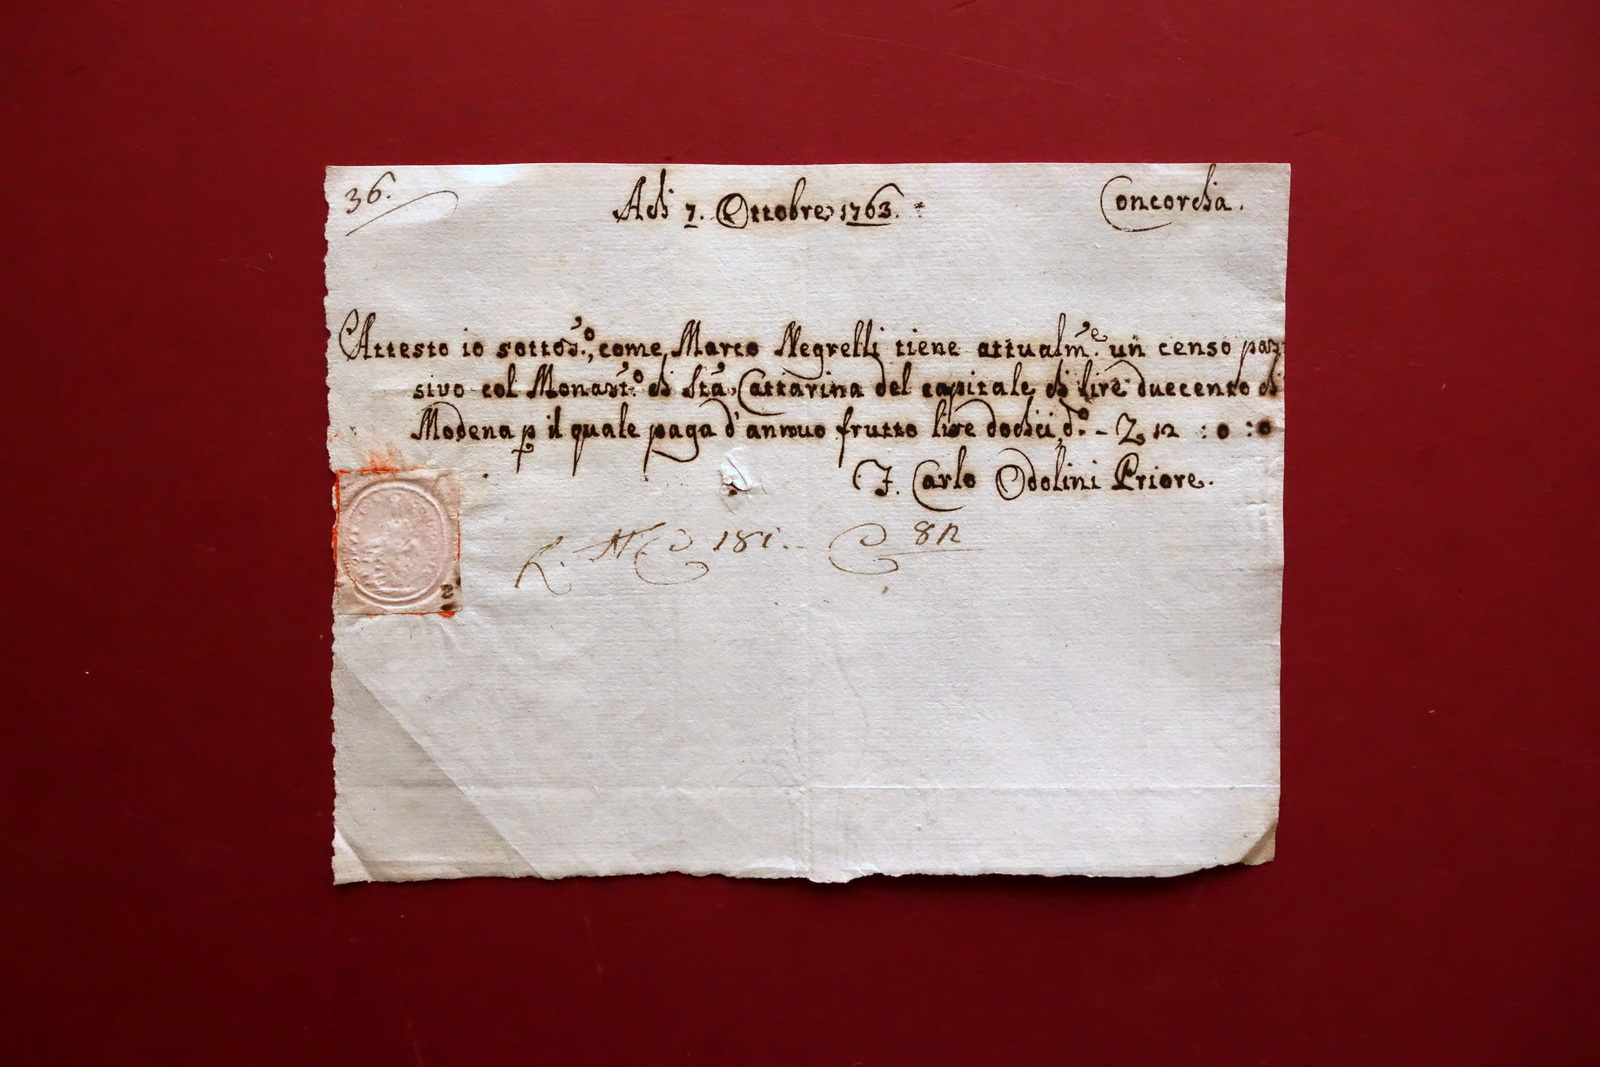 36.
Adi 7. Ottobre 1763.
Concordia.
Attesto io sottos.º, come Marco Negrelli tiene attualm.e un censo pas
sivo col Monast.º di Sta Cattarina del capitale di lire duecento di
Modena p il quale paga d'annuo frutto lire dodici, d.º - L 12 : 0 : 0
F. Carlo Odolini Priore.
181. C 812